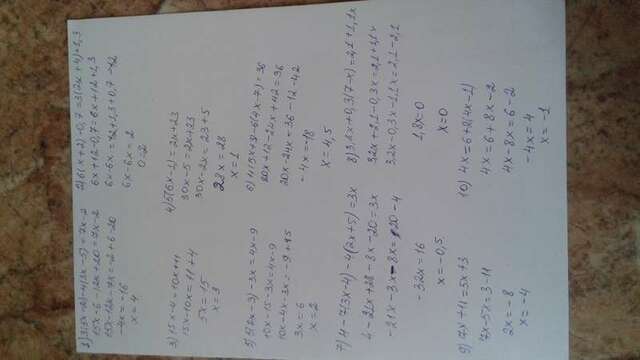 1) 3(5x-2)-4(3x-5)=7x-2
15x-6-12x+20=7x-2
15x-12x-7x=-2+6-20
-4x=-16
x=4
2) 6(x+2)-0,7=3(2x+4)+1,3
6x+12-0,7=6x+12+1,3
6x-6x=12+1,3+0,7-12
6x-6x=2
0=2
3) 15x-4=10x+11
15x-10x=11+4
5x=15
x=3
4) 5(6x-1)=2x+23
30x-5=2x+23
30x-2x=23+5
28x=28
x=1
5) 5(2x-3)-3x=4x-9
10x-15-3x=4x-9
10x-4x-3x=-9+15
3x=6
x=2
6) 4(5x+3)-6(4x-7)=36
20x+12-24x+42=36
20x-24x=36-12-42
-4x=-18
x=4,5
7) 4-7(3x-4)-4(2x+5)=3x
4-21x+28-8x-20=3x
-21x-3x-8x=20-4
-32x=16
x=-0,5
8) 3,2x+0,3(7-x)=2,1+1,1x
3,2x+2,1-0,3x=2,1+1,1x
3,2x-0,3x-1,1x=2,1-2,1
1,8x=0
x=0
9) 7x+11=5x+3
7x-5x=3-11
2x=-8
x=-4
10) 4x=6+2(4x-1)
4x=6+8x-2
4x-8x=6-2
-4x=4
x=-1